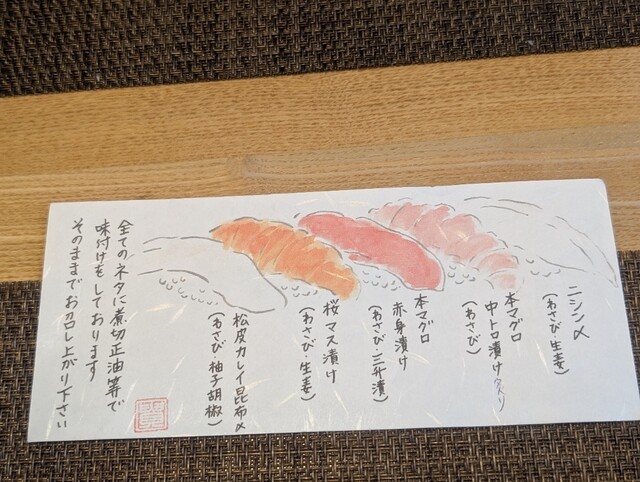 ニシン〆
(わさび・生姜)
本マグロ
中トロ漬け炙り
(わさび)
本マグロ
赤身漬け
(わさび・三升漬)
桜マス漬け
(わさび・生姜)
松皮カレイ昆布〆
(わさび・柚子胡椒)
全てのネタに煮切正油等で
味付けをしております
そのままでお召し上がり下さい